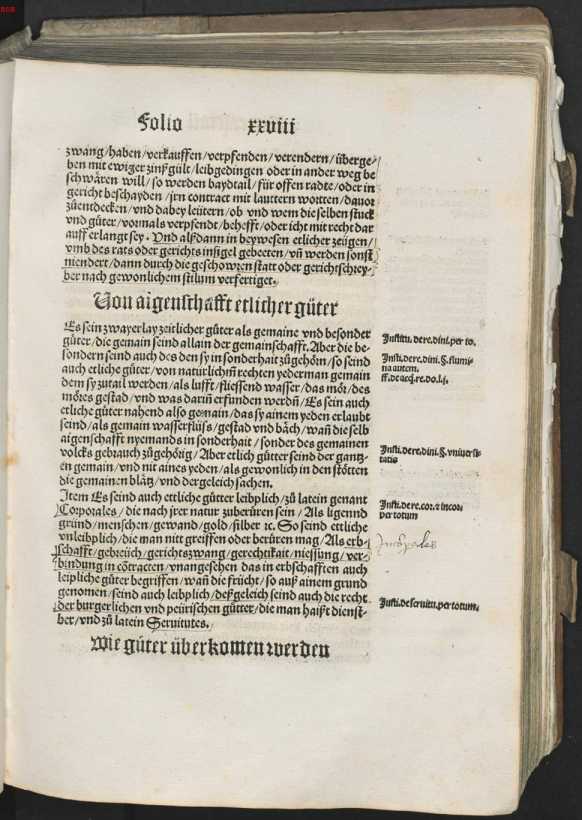 Folio xxviii
zwang/haben/verkauffen/verpfenden/verendern/überge⸗
ben mit ewiger zinßgült/leibgedingen oder in ander weg be
schwären will/so werden baydtail/für offen radte/oder in
gericht beschayden/jrn contract mit lauttern wortten/dauor
zůentdecken/vnd dabey leütern/ob vnd wem die selben stuck
vnd gůter/vormals verpfendt/behefft/oder icht mit recht dar
auff erlangt sey. Vnd alßdann in beywesen etlicher zeügen/
vmb des rats oder gerichts insigel gebeeten/vn̄ werden sonst
niendert/dann durch die geschowrenstatt oder gerichtschrey⸗
ber nach gewonlichem stilum verfertiget.
Von aigenschafft etlicher gůter
Es sein zwayerlay zeitlicher gůter als gemaine vnd besonder
gůter/die gemain seind allain der gemainschafft. Aber die be⸗
sondern seind auch des den sy in sonderhait zůgehörn/so seind
auch etliche gůter/von natürlichm̄ rechten yederman gemain
dem sy zůtail werden/als lufft/fliessend wasser/das mör/des
möres gestad/vnd was darin̄ erfunden werdn̄/Es sein auch
etliche gůter nahend also gemain/das sy ainem yeden erlaubt
seind/als gemain wasserflüß/gestad vnd bäch/wan̄ die selb
aigenschafft nyemands in sonderhait/sonder des gemainen
volcks gebrauch zůgehörig/Aber etlich gůter seind der gantz⸗
en gemain/vnd nit aines yeden/als gewonlich in den stötten
die gemainen blätz/vnd dergleich sachen.
Item Es seind auch ettliche gůtter leibplich/zů latein genant
Corporales/die nach jrer natur zuberüren sein/Als ligennd
grund/menschen/gewand/gold/silber ꝛc. So seind ettliche
vnleibplich/die man nitt greiffen oder berüren mag/Als erb⸗
schafft/gebreüch/gerichtszwang/gerechtikait/niessung/ver⸗
bindung in cōtracten/vnangesehen das in erbschafften auch
leipliche gůter begriffen/wan̄ die frücht/so auß ainem grund
genomen/seind auch leiplich/deßgeleich seind auch die recht
der burgerlichen vnd peürischen gůtter/die man haißt dienst⸗
ber/vnd zů latein Seruitutes.
Wie gůter überkomen werden
Institu. de re. diui. per to.
Insti. de re. diui. §. flumi⸗
na autem.
ff. de acq. re. do. l. j.
Insti. de re. diui. §. vniuersi⸗
tatis
Insti. de re. cor. ⁊ incor.
per totum
Insti. de seruitu. per totum.